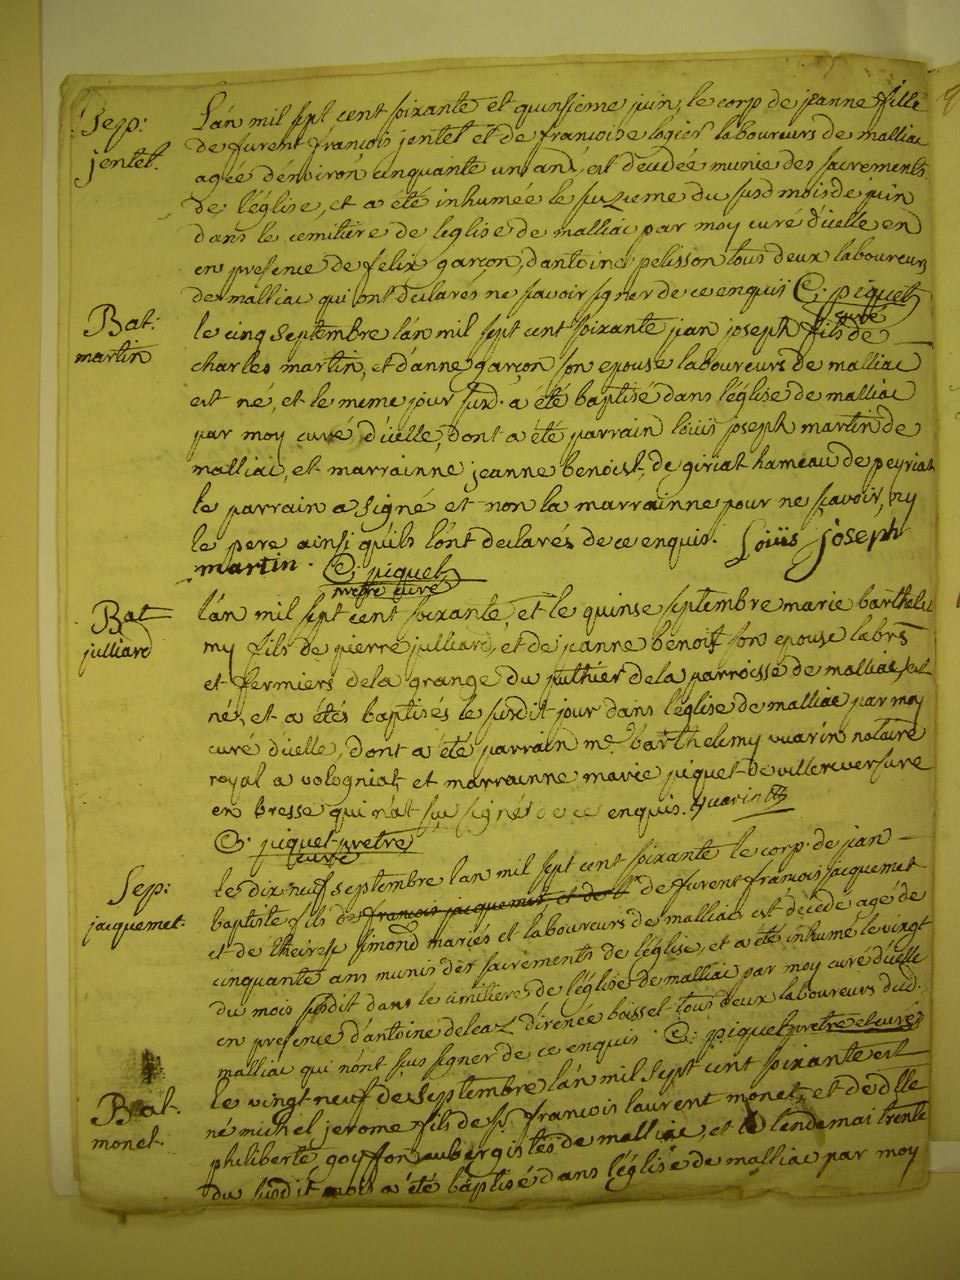 Sep:
jentet.
L'an mil sept cent soixante et quinsieme juin, le corp de jeanne fille
de furent françois jentet et de francoise logier laboureurs de malliac
agée dénviron cinquante un an, est décédée munie des sacrements
de l'église, et a été inhumée le seizieme du susd mois de juin
dans le cemitiere de léglise de malliac par moy curé d'icelle en
en presence de felix garçon, d'antoine pelisson tous deux laboureurs
de malliac qui ont declarés ne scavoir signer de ce enquis C: piquet
curé
Bat:
martin
le cinq septembre l'an mil sept cent soixante jean joseph fils de
charles martin, et d'anne garçon son epouse laboureurs de malliac
est né, et le meme jour susd. a été baptisé dans l'église de malliac
par moy curé d'icelle, dont a été parrain loüis joseph martin de
malliac, et marrainne jeanne benoist, de giriat hameau de peyriat
le parrain a signé et non la marrainne pour ne scavoir, ny
le pere ainsi quils l'ont declarés de ce enquis. Loüis joseph
martin. C: piquet
pretre curé
Bat
julliard
l'an mil sept cent soixante, et le quinse septembre marie barthele
my fils de pierre julliard, et de jeanne benoist son epouse labrs
et fermiers de la grange du puthier de la parroisse de malliac, est
né, et a étés baptisés le susdit jour dans l'église de malliac par moy
curé d'icelle, dont a été parrain me barthelemy vuarin notaire
royal a volognat, et marrainne marie piquet de villereversure
en bresse qui n'at sçu signér de ce enquis. vuarin
C: piquet pretre
curé
Sep:
jacquemet.
le dix neuf septembre l'an mil sept cent soixante le corp. de jean
baptiste fils de françois jacquemet et de de furent françois jacquemet
et de therese simond mariés et laboureurs de malliac est décédé agé de
cinquante ans munis des sacrements de l'église, et a été inhumé le vingt
du mois susdit dans le cimitiere de l'église de malliac par moy curé d'icelle
en presence d'antoine deleaz d'irenée boisset tous deux laboureurs dud.
malliac qui n'ont sçus signer de ce enquis. C: piquet pretre et curé
Bat.
monet.
le vingt neuf de septembre l'an mil sept cent soixante est
né michel jerome fils de sr françois laurent monet, et de dlle
philiberte goyffon aubergistes de malliac, et le lendemai trente
du susdit mois a été baptisé dans l'église de malliac par moy